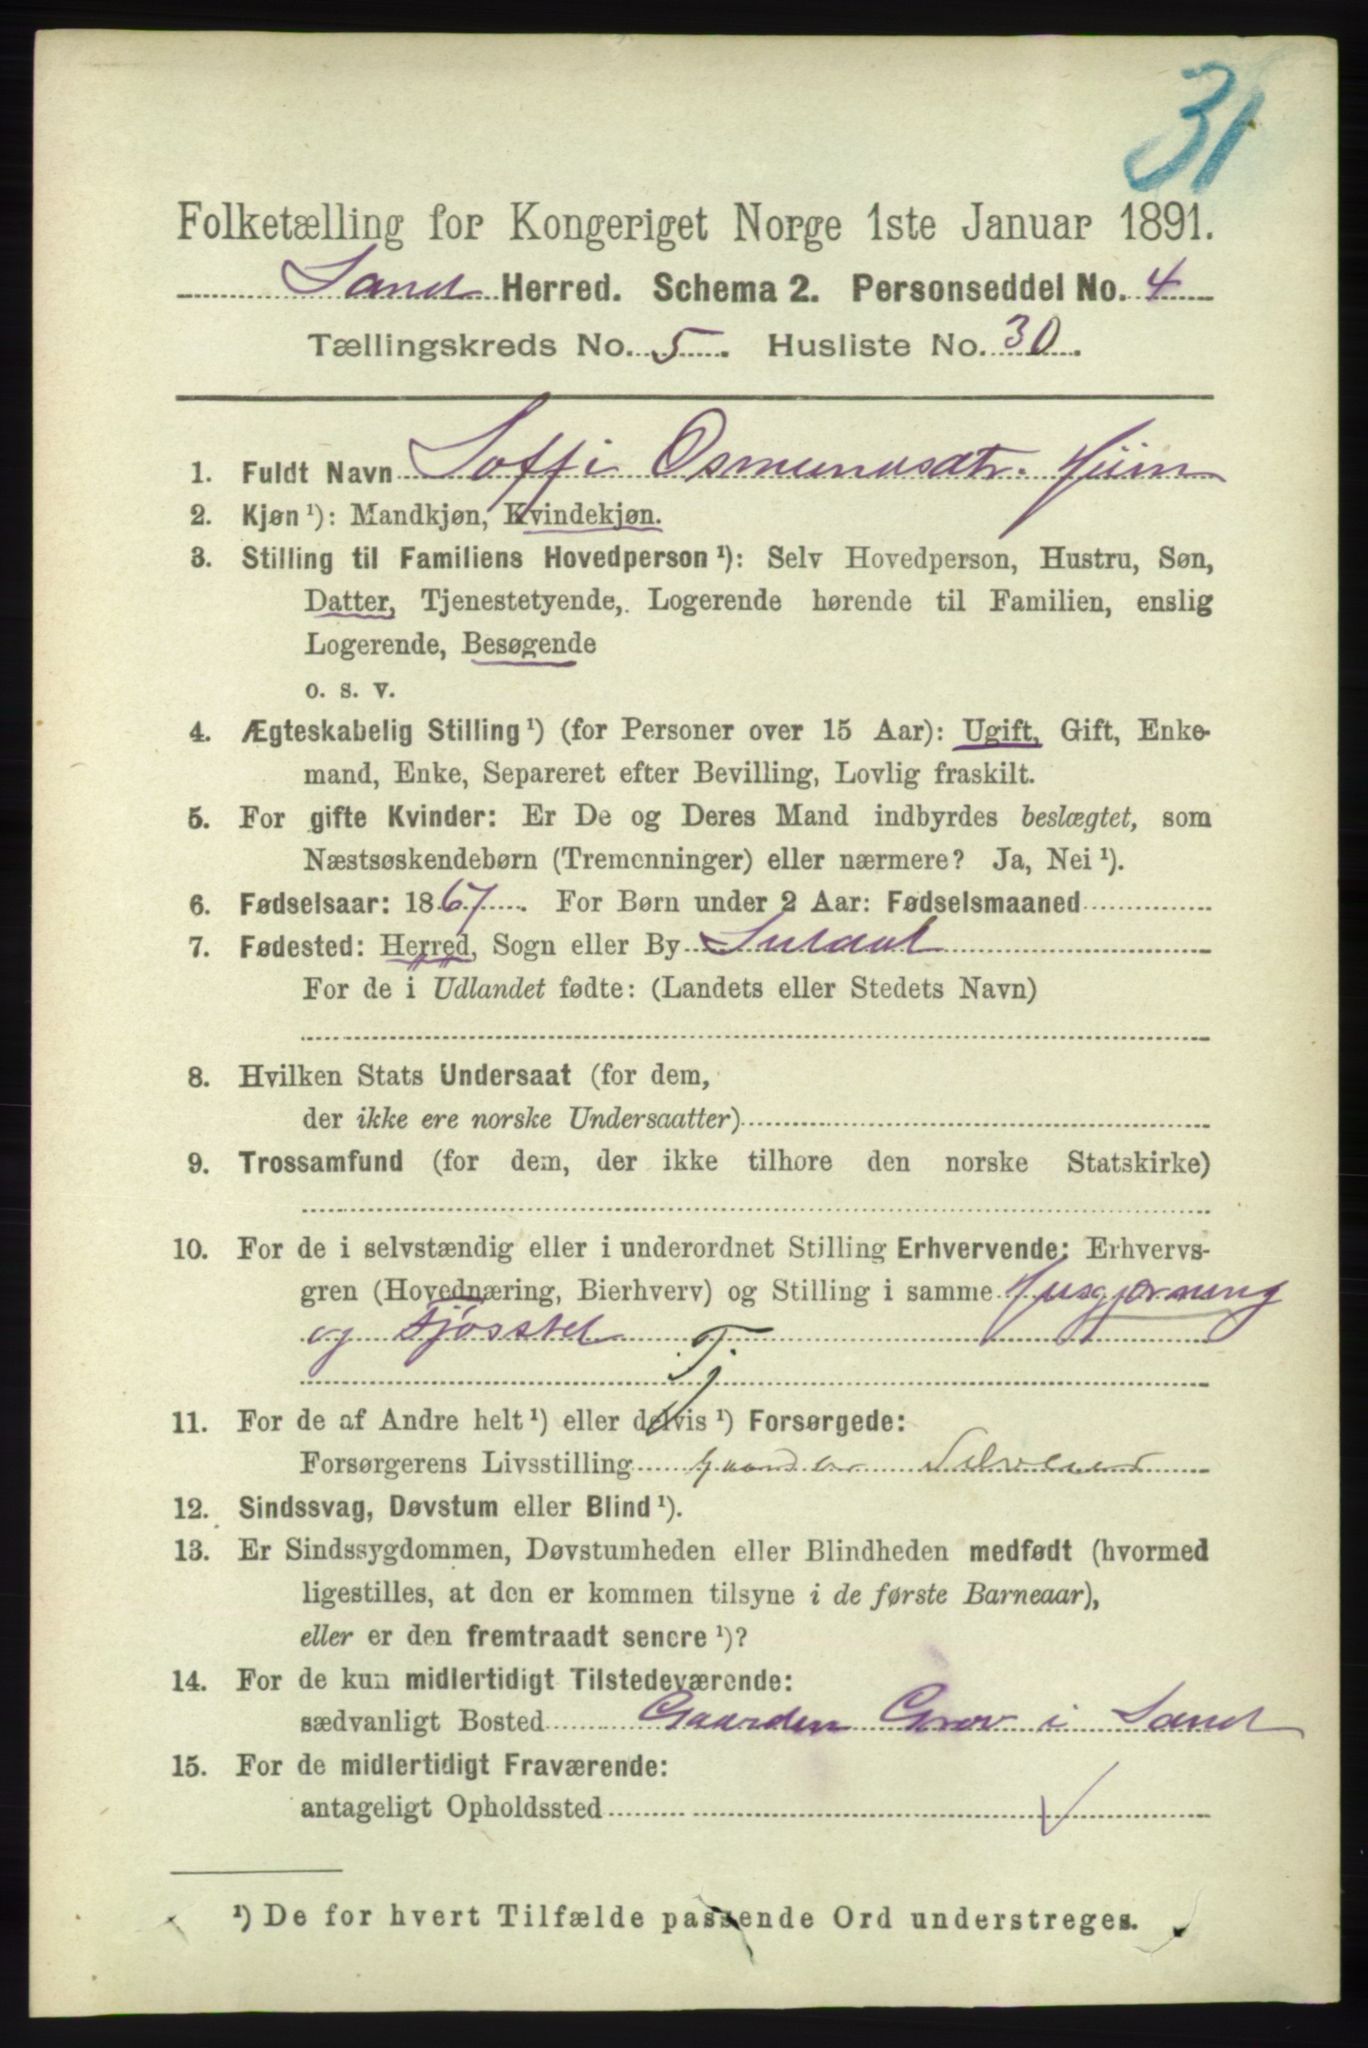 31
Folketælling for Kongeriget Norge 1ste Januar 1891.
Sand Herred. Schema 2. Personseddel No. 4
Tællingskreds No. 5. Husliste No. 30.
1. Fuldt Navn Soffi Osmundsdtr.
2. Kjøn ¹): Mandkjøn, Kvindekjøn.
3. Stilling til Familiens Hovedperson ¹): Selv Hovedperson, Hustru, Søn,
Datter, Tjenestetyende, Logerende hørende til Familien, enslig
Logerende, Besøgende
o. s. v.
4. Ægteskabelig Stilling ¹) (for Personer over 15 Aar): Ugift, Gift, Enke-
mand, Enke, Separeret efter Bevilling, Lovlig fraskilt.
5. For gifte Kvinder: Er De og Deres Mand indbyrdes beslægtet, som
Næstsøskendebørn (Tremenninger) eller nærmere? Ja, Nei ¹).
6. Fødselsaar: 1867. For Børn under 2 Aar: Fødselsmaaned
7. Fødested: Herred, Sogn eller By Suldal
For de i Udlandet fødte: (Landets eller Stedets Navn)
8. Hvilken Stats Undersaat (for dem,
der ikke ere norske Undersaatter)
9. Trossamfund (for dem, der ikke tilhøre den norske Statskirke)
10. For de i selvstændig eller i underordnet Stilling Erhvervende: Erhvervs-
gren (Hovednæring, Bierhverv) og Stilling i samme Husgjerning
og Fjøsstel
Tj
11. For de af Andre helt ¹) eller delvis ¹) Forsørgede:
Forsørgerens Livsstilling Gaardbr. Selveier
12. Sindssvag, Døvstum eller Blind ¹).
13. Er Sindssygdommen, Døvstumheden eller Blindheden medfødt (hvormed
ligestilles, at den er kommen tilsyne i de første Barneaar),
eller er den fremtraadt senere ¹)?
14. For de kun midlertidigt Tilstedeværende:
sædvanligt Bosted Gaarden Grov i Sand
15. For de midlertidigt Fraværende:
antageligt Opholdssted
¹) De for hvert Tilfælde passende Ord understreges.